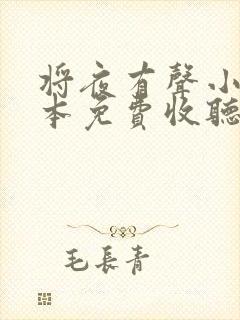 将夜有聲小
本免費收聽
毛長青